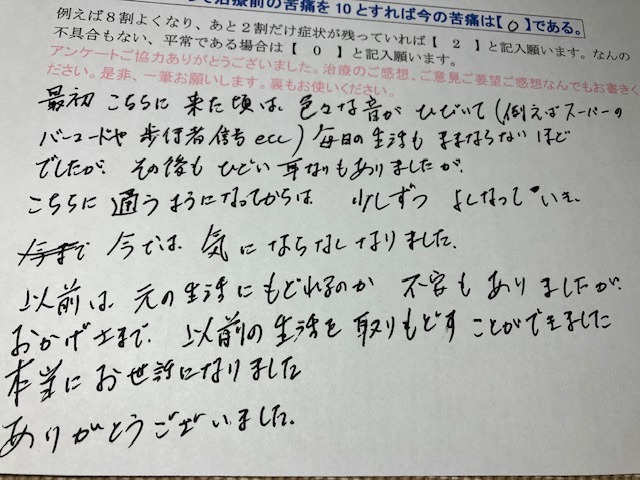 て治療前の苦痛を10とすれば今の苦痛は【0】である。
例えば8割よくなり、あと2割だけ症状が残っていれば【 2 】と記入願います。なんの
不具合もない、平常である場合は【 0 】と記入願います。
アンケートご協力ありがとうございました。治療のご感想、ご意見ご要望ご感想なんでもお書きく
ださい。是非、一筆お願いします。裏もお使いください。
最初 こちらに 来た頃は、色々な音が ひびいて(例えばスーパーの
バーコードや 歩行者信号 ecc) 毎日の生活も ままならないほど
でしたが、その後も ひどい 耳なりもありましたが、
こちらに 通うようになってからは 少しずつ よくなっていき、
今まで 今では、気に ならなくなりました。
以前は 元の生活に もどれるのか 不安も ありましたが、
おかげさまで、以前の生活を 取りもどす ことができました
本当に お世話になりました
ありがとうございました。